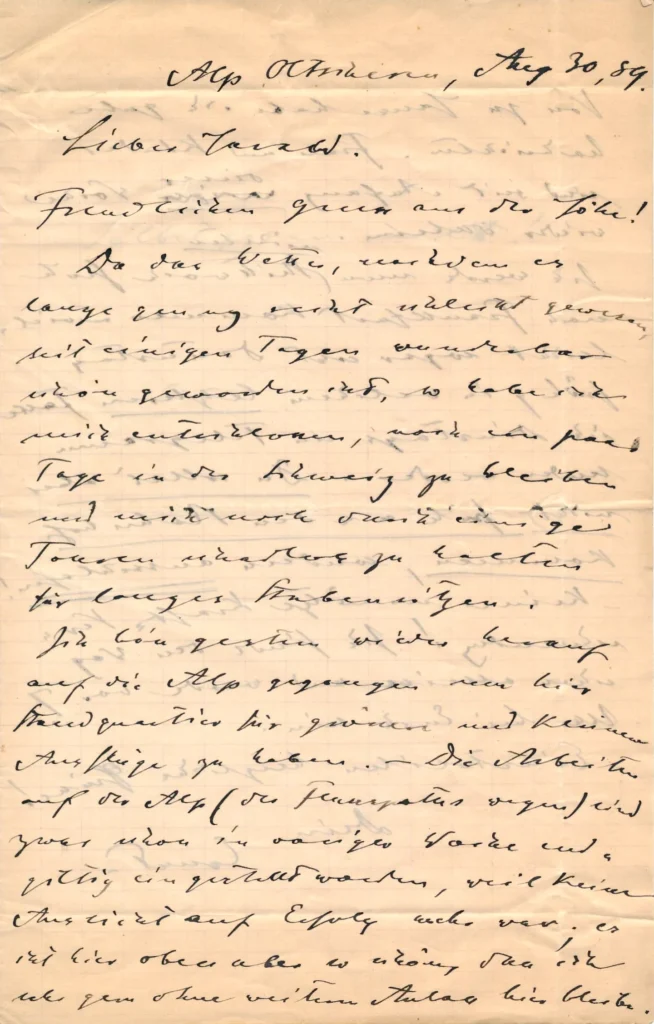 Alp Oltscheren, Aug 30, 89.
Lieber
Freundlichen Gruss aus der Höhe!
Da das Wetter, nachdem es
lange genug recht schlecht gewesen,
seit einigen Tagen wunderbar
schön geworden ist, so habe ich
mich entschlossen, noch ein paar
Tage in der Schweiz zu bleiben
und mich noch durch einige
Touren schadlos zu halten
für langes Stubensitzen.
Ich bin gestern wieder herauf
auf die Alp gegangen um hier
Standquartier für grössere und kleinere
Ausflüge zu haben. – Die Arbeiten
auf der Alp (des Flusspates wegen) sind
zwar schon in voriger Woche end-
gültig eingestellt worden, weil keine
Aussicht auf Erfolg mehr war; es
ist hier oben aber so schön, dass ich
sehr gern ohne weitern Anlass hier bleibe.